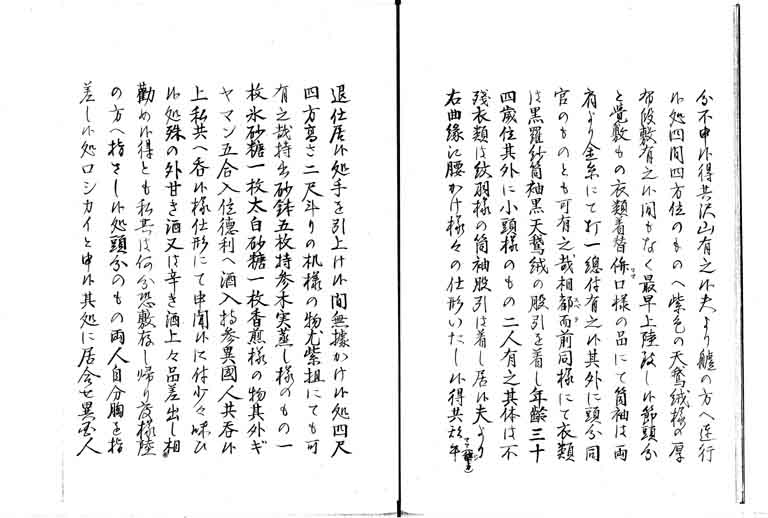 分不申候得共沢山有之候夫より艫の方へ連行
候処四間四方位のものへ紫色の天鵞絨様の厚
布段敷有之候間もなく最早上陸致し候節頭分
と覚敷もの衣類着替 係口様の品にて筒袖は両
肩より金糸にて打一總付有之候其外に頭分同
官のものとも可有之哉相都而前同様にて衣類
は黒羅紗筒袖黒天鵞絨の股引を着し年齢三十
四歳位其外に小頭様のもの二人有之其体は不
残衣類は紋羽様の筒袖股引は着し居候夫より
右曲縁に腰かけ様々の仕形いたし候得共
退仕居候処手を引上け候間無據かけ候処四尺
四方高さ二尺斗りの机様の物尤紫担にても可
有之哉持出砂鉢五枚持参木実蒸し様のもの一
枚氷砂糖一枚太白砂糖一枚香煎様の物其外ギ
ヤマン五合入位德利へ酒入持参異國人共呑候
上私共へ呑候様仕形にて申聞候に付少々味ひ
候処殊の外甘き酒又は辛き酒上々品差出し相
勸め候得とも私共は何分恐敷存し帰り度様陸
の方へ指さし候処頭分のもの両人自分胸を指
差し候処ロシカイと申候其処に居合せ異国人